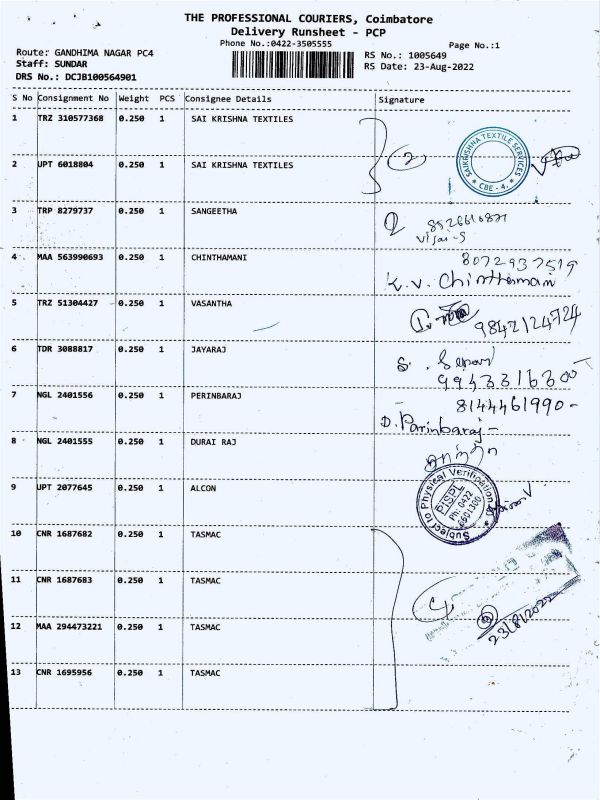 THE PROFESSIONAL COURIERS, Coimbatore
Delivery Runsheet - PCP
Phone No.:0422-3505555
Page No.:1
Route: GANDHIMA NAGAR PC4
Staff: SUNDAR
DRS No.: DCJB100564901
RS No.: 1005649
RS Date: 23-Aug-2022
S No Consignment No Weight PCS Consignee Details Signature
1 TRZ 310577368 0.250 1 SAI KRISHNA TEXTILES
2 UPT 6018804 0.250 1 SAI KRISHNA TEXTILES
2
SAIKRISHNA TEXTILE SERVICES
* CBE - 4. *
3 TRP 8279737 0.250 1 SANGEETHA
8526610871
Vijai-S
4 MAA 563990693 0.250 1 CHINTHAMANI
8072937519
K. V. Chinthamani
5 TRZ 51304427 0.250 1 VASANTHA
9842124724
6 TDR 3088817 0.250 1 JAYARAJ
S.
9943316300
7 NGL 2401556 0.250 1 PERINBARAJ
8144461990-
D. Parinbaraj-
8 NGL 2401555 0.250 1 DURAI RAJ
9 UPT 2077645 0.250 1 ALCON
Subject to Physical Verification
PISPL
Ph: 0422
6501300
10 CNR 1687682 0.250 1 TASMAC
11 CNR 1687683 0.250 1 TASMAC
4
23/8/2022
12 MAA 294473221 0.250 1 TASMAC
13 CNR 1695956 0.250 1 TASMAC